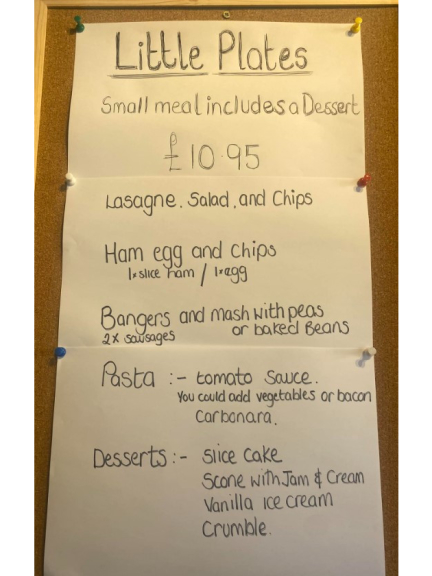 Little Plates
Small meal includes a Dessert
£10.95
Lasagne, Salad, and Chips
Ham egg and Chips
1x slice ham / 1x egg
Bangers and mash with peas
2x sausages or baked Beans
Pasta :- tomato sauce.
You could add vegetables or bacon
Carbonara.
Desserts :- Slice Cake
Scone with Jam & Cream
Vanilla ice cream
Crumble.